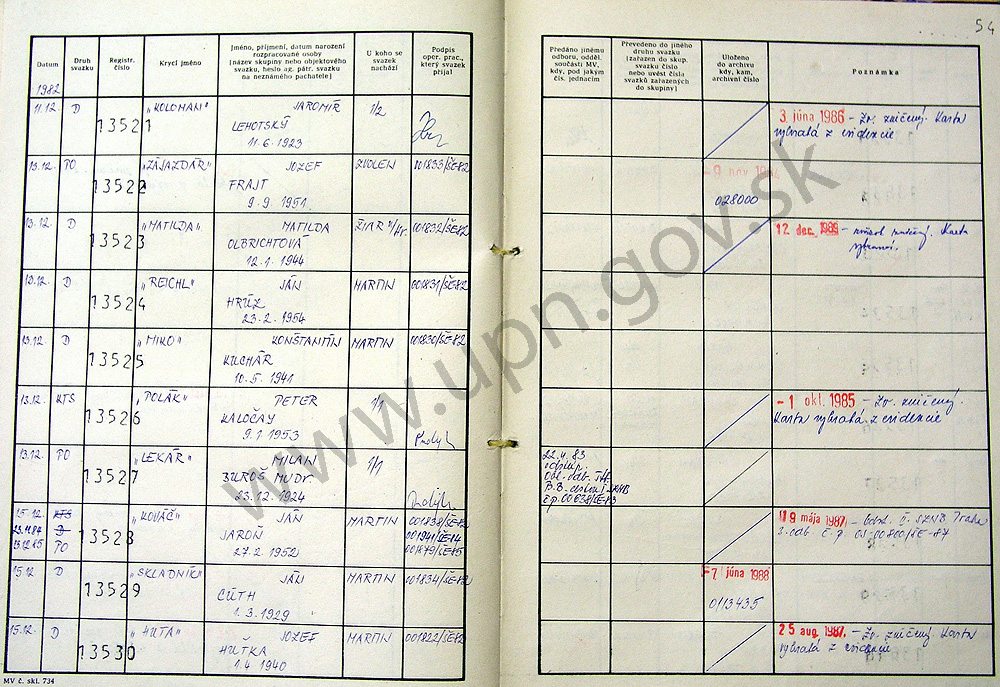 54
Datum
Druh svazku
Registr. číslo
Krycí jméno
Jméno, příjmení, datum narození
rozpracované osoby
(název skupiny nebo objektového
svazku, heslo ag. pátr. svazku
na neznámého pachatele)
U koho se
svazek
nachází
Podpis
oper. prac.,
který svazek
přijal
Předáno jinému
odboru, odděl.
součásti MV,
kdy, pod jakým
čís. jednacím
Převedeno do jiného
druhu svazku
(zařazen do skup.
svazku číslo
nebo uvést čísla
svazků zařazených
do skupiny)
Uloženo
do archivu
kdy, kam,
archivní číslo
Poznámka
1982
11.12. D 13521 "KOLOMAN" JAROMÍR 1/2
LEHOTSKÝ
11.6.1923
3. júna 1986 - Zv. zničený. Karta
vybratá z evidencie
13.12. PO 13522 "ZÁJAZDÁR" JOZEF ZVOLEN 001833/ŠE-82
FRAJT
9.9.1951
028000
13.12. D 13523 "MATILDA" MATILDA 001832/ŠE-82
OLBRICHTOVÁ
12.1.1944
12. dec. 1986 - zničený. Karta
13.12. D 13524 "REICHL" JÁN MARTIN 001831/ŠE-82
HRÚZ
23.2.1954
13.12. D 13525 "MIKO" KONŠTANTÍN MARTIN 001830/ŠE-82
KUCHÁR
10.5.1941
13.12. KTS 13526 "POLÁK" PETER 1/1
KALOČAY
9.1.1953
- 1. okt. 1985 - Zv. zničený.
Karta vybratá z evidencie
13.12. PO 13527 "LEKÁR" MILAN 1/1
BUROŠ MUDr
23.12.1924
22.4.83
odstúp.
15.12. KTS 13528 "KOVÁČ" JÁN MARTIN 001838/ŠE-82
JAROŇ
27.2.1952
PO
9 mája 1987 - Praha
15.12. D 13529 "SKLADNÍK" JÁN MARTIN 001834/ŠE-82
CÚTH
1.3.1929
-7. júna 1988
0/13435
15.12. D 13530 "HUTA" JOZEF MARTIN 001822/ŠE-82
HÚTKA
1.4.1940
25 aug. 1987. - Zv. zničený. Karta
vybratá z evidencie
MV č. skl. 734
www.upn.gov.sk